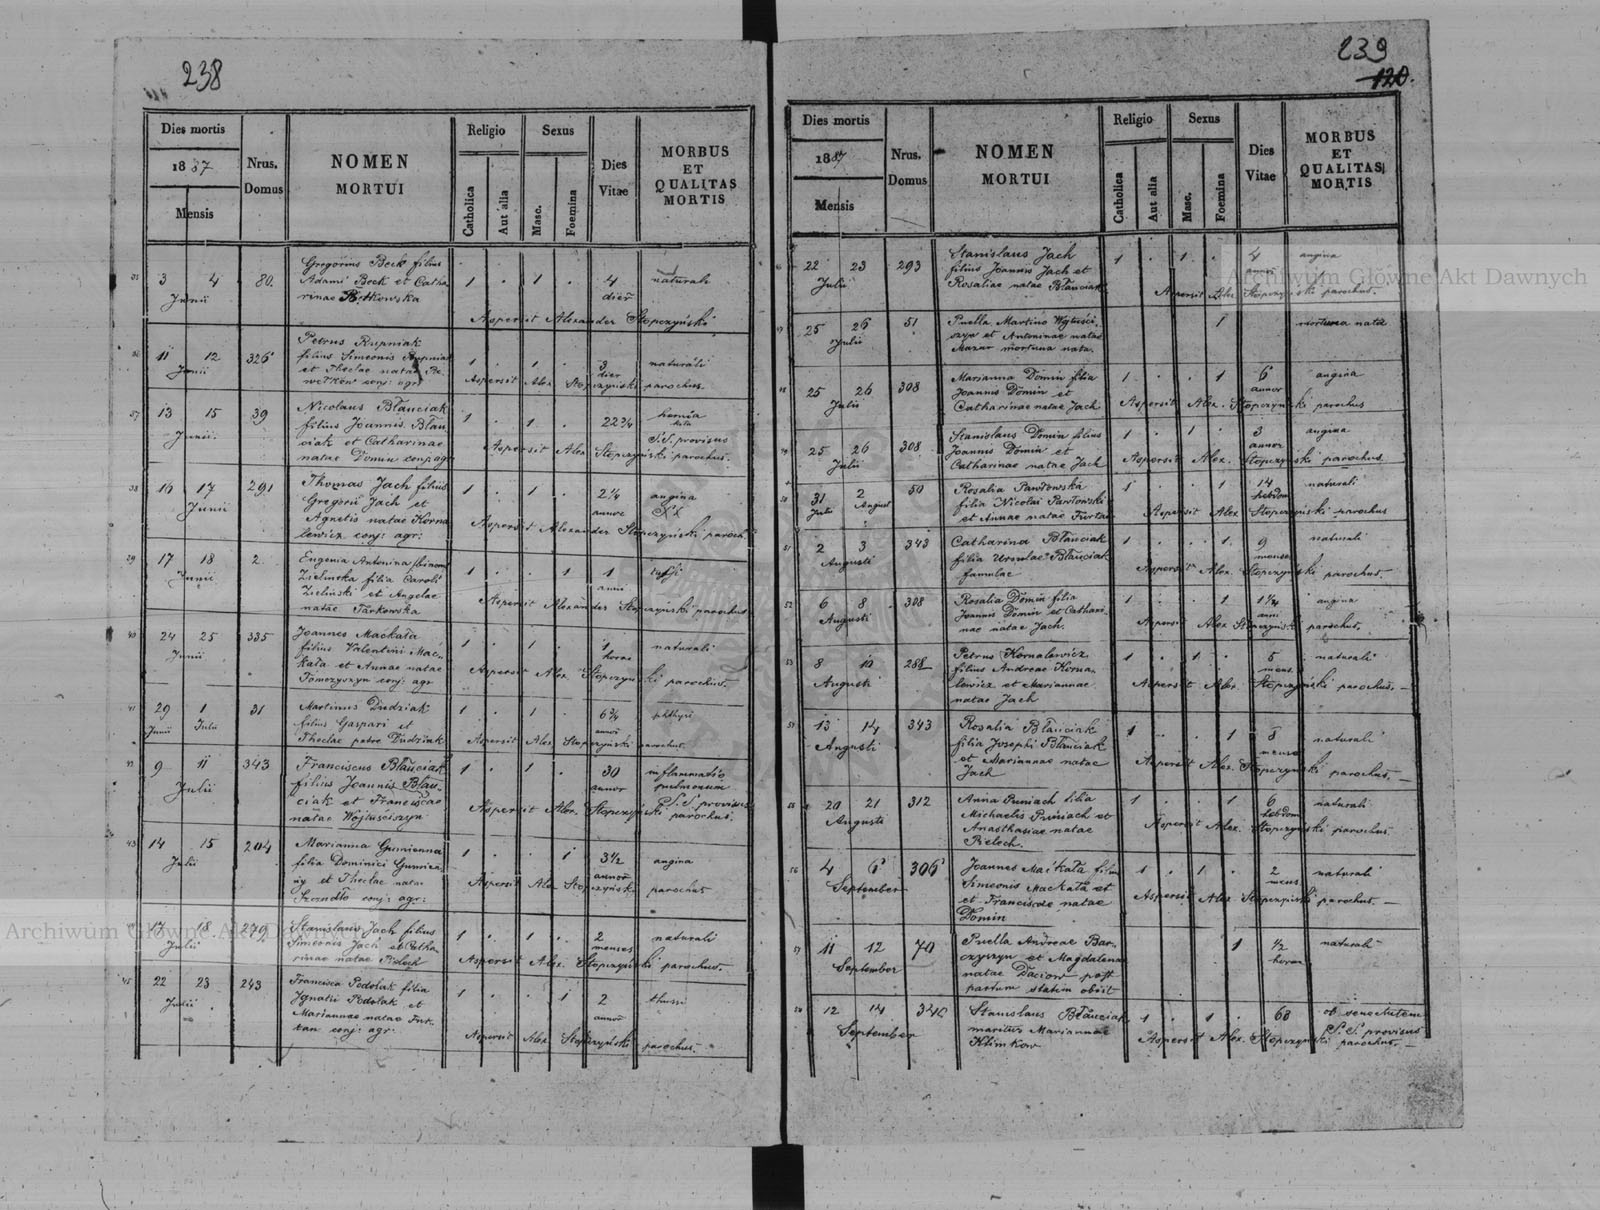 238
Dies mortis
1887
Mensis
Nrus.
Domus
NOMEN
MORTUI
Religio
Catholica
Aut alia
Sexus
Masc.
Foemina
Dies
Vitae
MORBUS
ET
QUALITAS
MORTIS
35 3 4 80. Gregorius Beck filius 1 . 1 . 4 naturali
Junii Adami Beck et Catha dier
rinae
Aspersit Alexander Stopczyński
36 11 12 326 Petrus Rupniak 1 . 1 . 3 naturali
Junii filius Simeonis Rupniak dier
et Theclae natae
conj: agr:
Aspersit Alex Stopczyński parochus.
37 13 15 39 Nicolaus Błauciak 1 . 1 . 22¾ hernia
Junii filius Joannis Błau
ciak et Catharinae S.S. provisus
natae Domin conj agr
Aspersit Alex Stopczyński parochus.
38 16 17 291 Thomas Jach filius 1 . 1 . 2¼ angina
Junii Gregorii Jach et
Agnetis natae Korna
lewicz conj: agr:
Aspersit Alexander Stopczyński paroch.
39 17 18 2 Eugenia Antonina 1 . . 1 1
Junii Zielinska filia Caroli anni
Zieliński et Angelae
natae Tarkowska
Aspersit Alexander Stopczyński parochus
40 24 25 335 Joannes Mackała 1 . 1 . 1 naturali
Junii filius Valentini Mac horae
kała et Annae natae
Tomczyszyn conj: agr
Aspersit Alex. Stopczyński parochus.
41 29 1 31 Martinus Dudziak 1 . 1 . 6¾ phthysi
Junii Julii filius Gaspari et
Theclae Dudziak
Aspersit Alex Stopczyński parochus.
42 9 11 343 Franciscus Błauciak 1 . 1 . 30 inflammatio
Julii filius Joannis Błau annor pulmonum
ciak et Franciscae S.S provisus
natae Wojtuściszyn
Aspersit Alex. Stopczyński parochus.
43 14 15 204 Marianna Gumienna 1 . . 1 3½ angina
Julii filia Dominici Gumien annor
ny et Theclae natae
Szczudło conj: agr:
Aspersit Alex Stopczyński parochus
17 18 279 Stanislaus Jach filius 1 . 1 . 2 naturali
Julii Simeonis Jach et Catha menses
rinae natae Pielech
Aspersit Alex. Stopczyński parochus.
45 22 23 243 Francisca Podolak filia 1 . . 1 2 thussi
Julii Ignatii Podolak et annor
Mariannae natae Fur
tan conj: agr:
Aspersit Alex Stopczyński parochus.
239
120.
Dies mortis
1887
Mensis
Nrus.
Domus
NOMEN
MORTUI
Religio
Catholica
Aut alia
Sexus
Masc.
Foemina
Dies
Vitae
MORBUS
ET
QUALITAS
MORTIS
22 23 293 Stanislaus Jach 1 . 1 . 4 angina
Julii filius Joannis Jach et
Rosaliae natae Błauciak
Aspersit Alex Stopczyński parochus.
25 26 51 Puella Martino Wojtuści 1 mortuua nata
Julii szyn et Antoninae natae
Mazur mortuua nata.
48 25 26 308 Marianna Domin filia 1 . . 1 6 angina
Julii Joannis Domin et annor
Catharinae natae Jach
Aspersit Alex. Stopczyński parochus
49 25 26 308 Stanislaus Domin filius 1 . 1 . 3 angina
Julii Joannis Domin et annor
Catharinae natae Jach
Aspersit Alex. Stopczyński parochus
50 31 2 50 Rosalia Pawłowska 1 . . 1 14 naturali
Julii August filia Nicolai Pawłowski hebdom
et Annae natae Furtan
Aspersit Alex Stopczyński parochus
51 2 3 343 Catharina Błauciak 1 . . 1 9 naturali
Augusti filia Ursulae Błauciak menses
famulae
Aspersit Alex. Stopczyński parochus.
52 6 8 308 Rosalia Domin filia 1 . . 1 1¼ angina
Augusti Joannis Domin et Cathari anni
nae natae Jach.
Aspersit Alex Stopczyński parochus.
53 8 10 288 Petrus Kornalewicz 1 . 1 . 5 naturali
Augusti filius Andreae Korna mens.
lewicz et Mariannae
natae Jach
Aspersit Alex. Stopczyński parochus.
54 13 14 343 Rosalia Błauciak 1 . . 1 8 naturali
Augusti filia Josephi Błauciak menses
et Mariannae natae
Jach
Aspersit Alex. Stopczyński parochus.
55 20 21 312 Anna Puniach filia 1 . . 1 6 naturali
Augusti Michaelis Puniach et hebdom
Anasthasiae natae
Pielech.
Aspersit Alex. Stopczyński parochus.
56 4 6 306 Joannes Mackała filius 1 . 1 . 2 naturali
September Simeonis Mackała et mens
et Franciscae natae
Domin
Aspersit Alex Stopczyński parochus.
57 11 12 70 Puella Andreae Bar 1 ½ naturali
September czyszyn et Magdalena horae
natae Daciow post
partum statim obiit
58 12 14 346 Stanislaus Błauciak 1 . 1 . 68 ob senectutem
September maritus Mariannae S.S. provisus
Klimkow
Aspersit Alex. Stopczyński parochus.
Archiwum Główne Akt Dawnych
Archiwum Główne Akt Dawnych